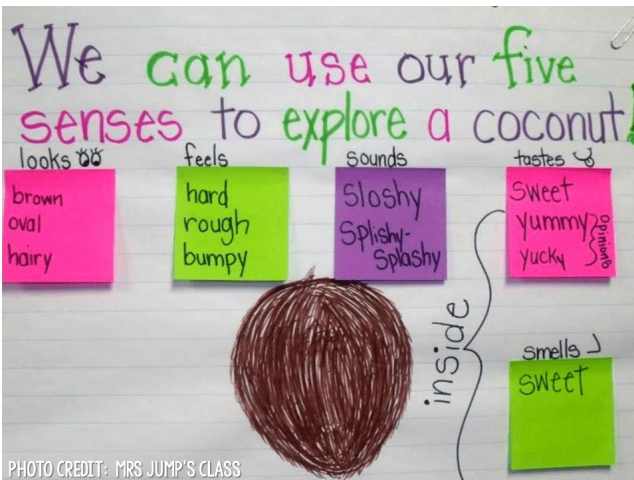 We can use our five
senses to explore a coconut!
looks
brown
oval
hairy
feels
hard
rough
bumpy
sounds
Sloshy
Splishy-
Splashy
tastes
Sweet
yummy
yucky
opinions
inside
smells
sweet
PHOTO CREDIT: MRS JUMP'S CLASS